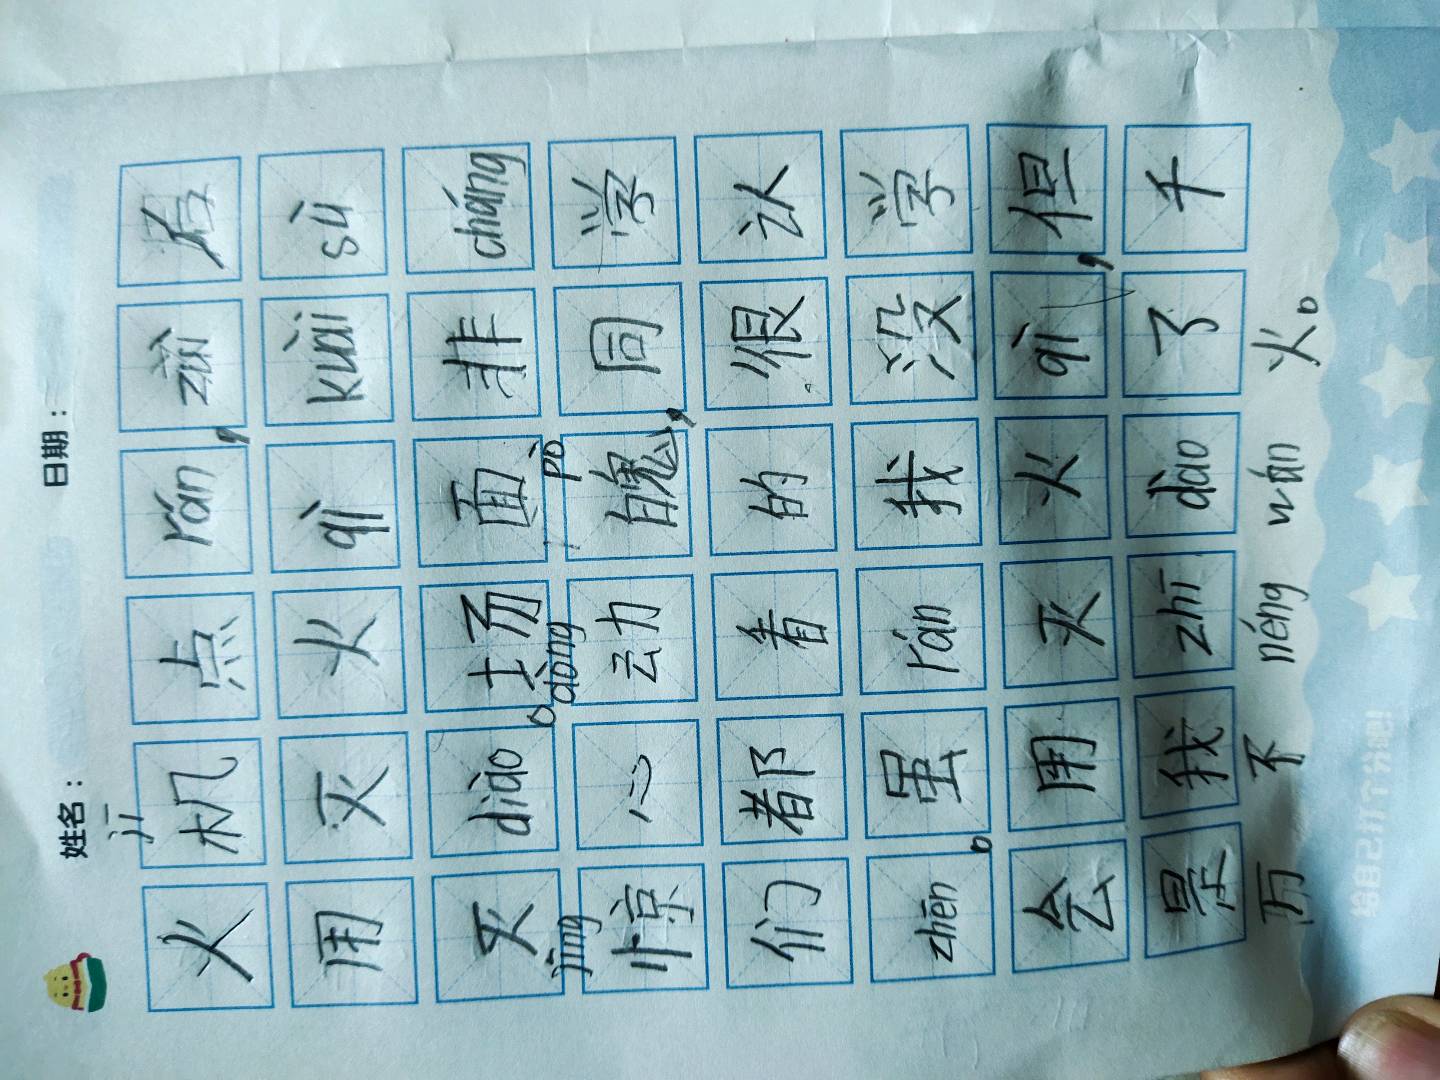 姓名： 日期：
jī
火机点rán，zài
用灭火qì kuài sù
灭diào。场面非cháng
jīng dòng pò
惊心动魄，同学
们都看的很认
zhēn。虽rán我没学
会用灭火qì，但
是我zhī dào了千
万不néng wán火。